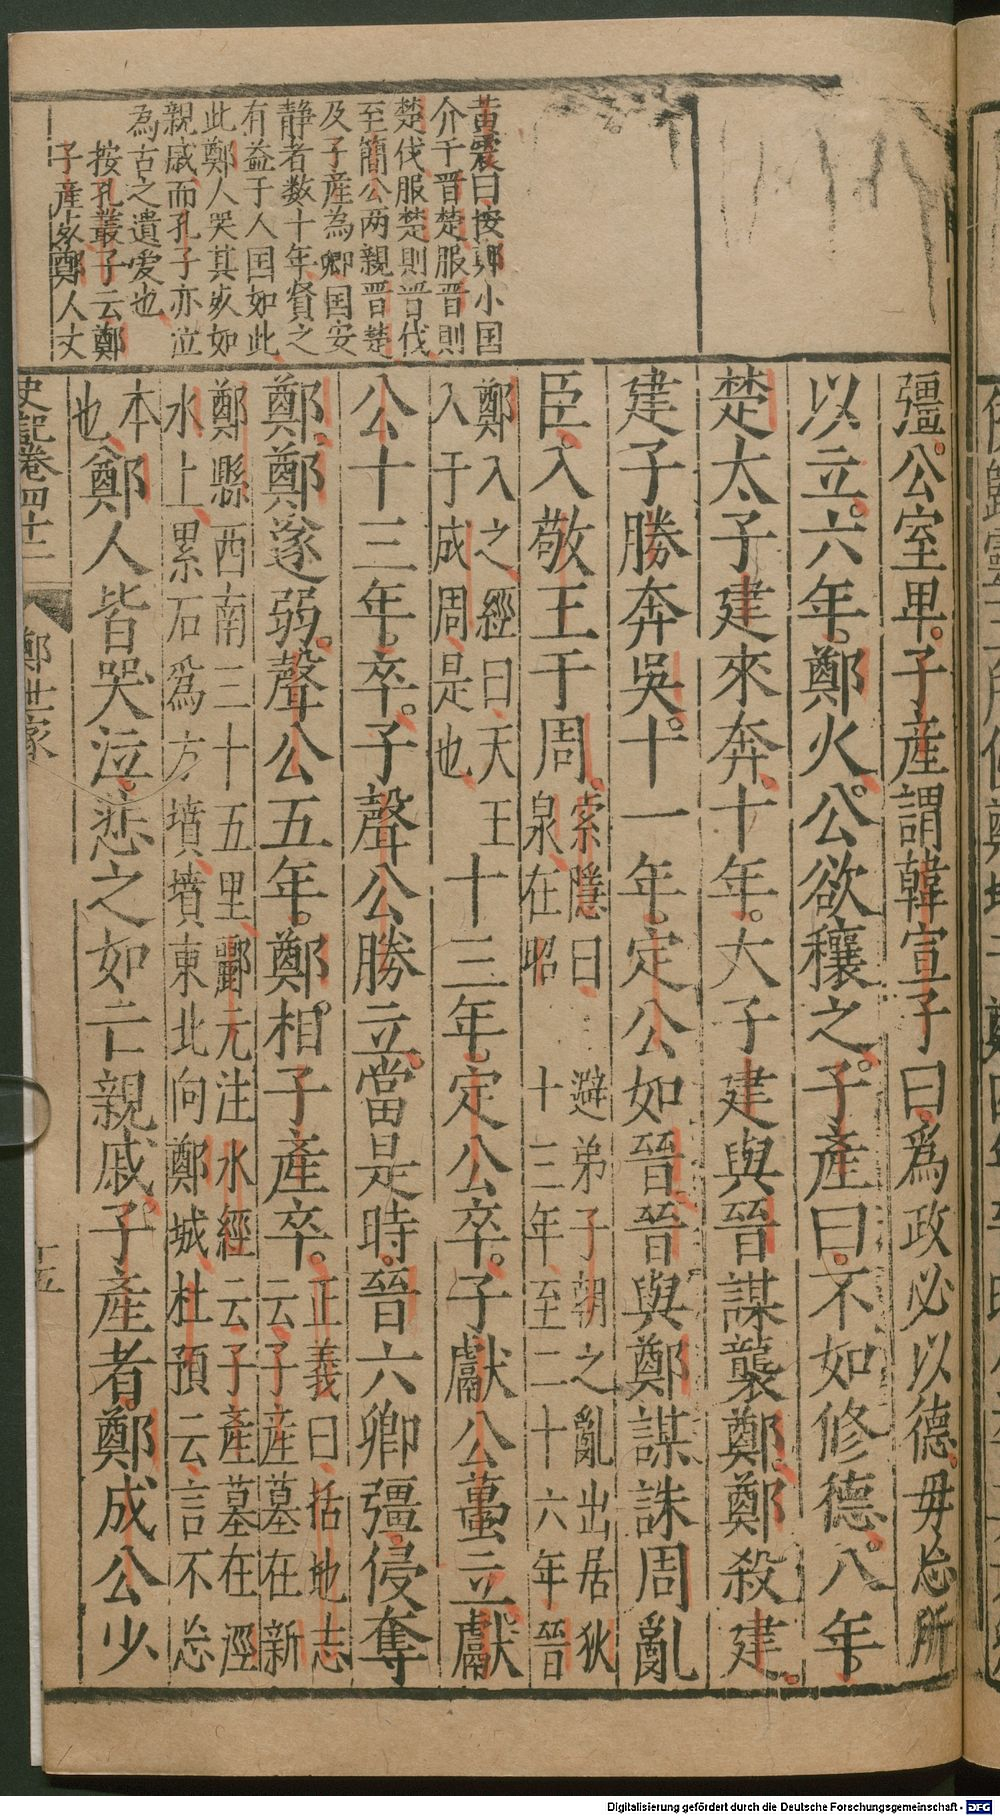 黃震曰按鄭小国
介于晋楚服晋則
楚伐服楚則晋伐
至簡公两親晋楚
及子産為卿国安
静者数十年賢之
有益于人国如此
此鄭人哭其死如
親戚而孔子亦泣
為古之遺愛也
按孔叢子云鄭
子産死鄭人丈
彊公室卑子産謂韓宣子曰爲政必以德毋忘所
以立六年鄭火公欲穰之子產曰不如修德八年
楚太子建來奔十年大子建與晉謀襲鄭鄭殺建
建子勝奔吳十一年定公如晉晉與鄭謀誅周亂
臣入敬王于周索隱曰避弟子朝之亂出居狄
泉在昭十三年至二十六年晉
鄭入之經曰天王
入于成周是也
十三年定公卒子獻公蠆立獻
公十三年卒子聲公勝立當是時晉六卿彊侵奪
鄭鄭遂弱聲公五年鄭相子產卒正義曰括地志
云子産墓在新
鄭縣西南三十五里酈元注水經云子產墓在潩
水上累石爲方墳墳東北向鄭城杜預云言不忘
本
也
鄭人皆哭泣悲之如亡親戚子產者鄭成公少
史記卷四十二
鄭世家
十五
Digitalisierung gefördert durch die Deutsche Forschungsgemeinschaft - DFG